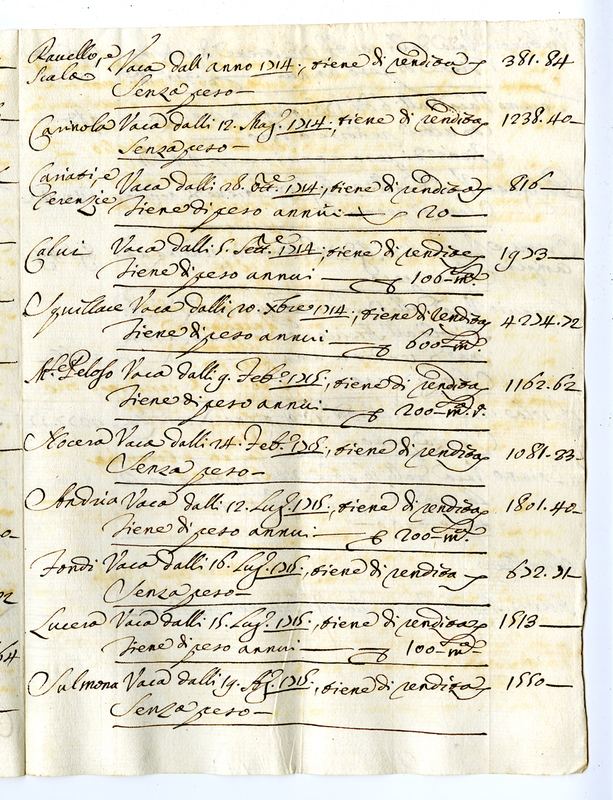 Ravello, e Scala Vaca dall' anno 1714., tiene di rendita 381.84
Senza peso
Carinola Vaca dalli 12. Mag. 1714., tiene di rendita 1238.40
Senza peso
Cariati, e Cerenzie Vaca dalli 28. Ott.e 1714., tiene di rendita 816
Tiene di peso annui 20
Calvi Vaca dalli 5. Sett.e 1714., tiene di rendita 1973
Tiene di peso annui 106
Squillace Vaca dalli 20. Xbre 1714., tiene di rendita 4274.72
Tiene di peso annui 600
M.te Peloso Vaca dalli 9. Feb.o 1715., tiene di rendita 1162.62
Tiene di peso annui 200
Nocera Vaca dalli 24. Feb.o 1715., tiene di rendita 1081.23
Senza peso
Andria Vaca dalli 12. Lug. 1715., tiene di rendita 1801.40
Tiene di peso annui 200
Fondi Vaca dalli 16. Lug. 1715., tiene di rendita 672.71
Senza peso
Lucera Vaca dalli 15. Lug. 1715., tiene di rendita 1513
Tiene di peso annui 100
Sulmona Vaca dalli 19. 1715., tiene di rendita 1550
Senza peso